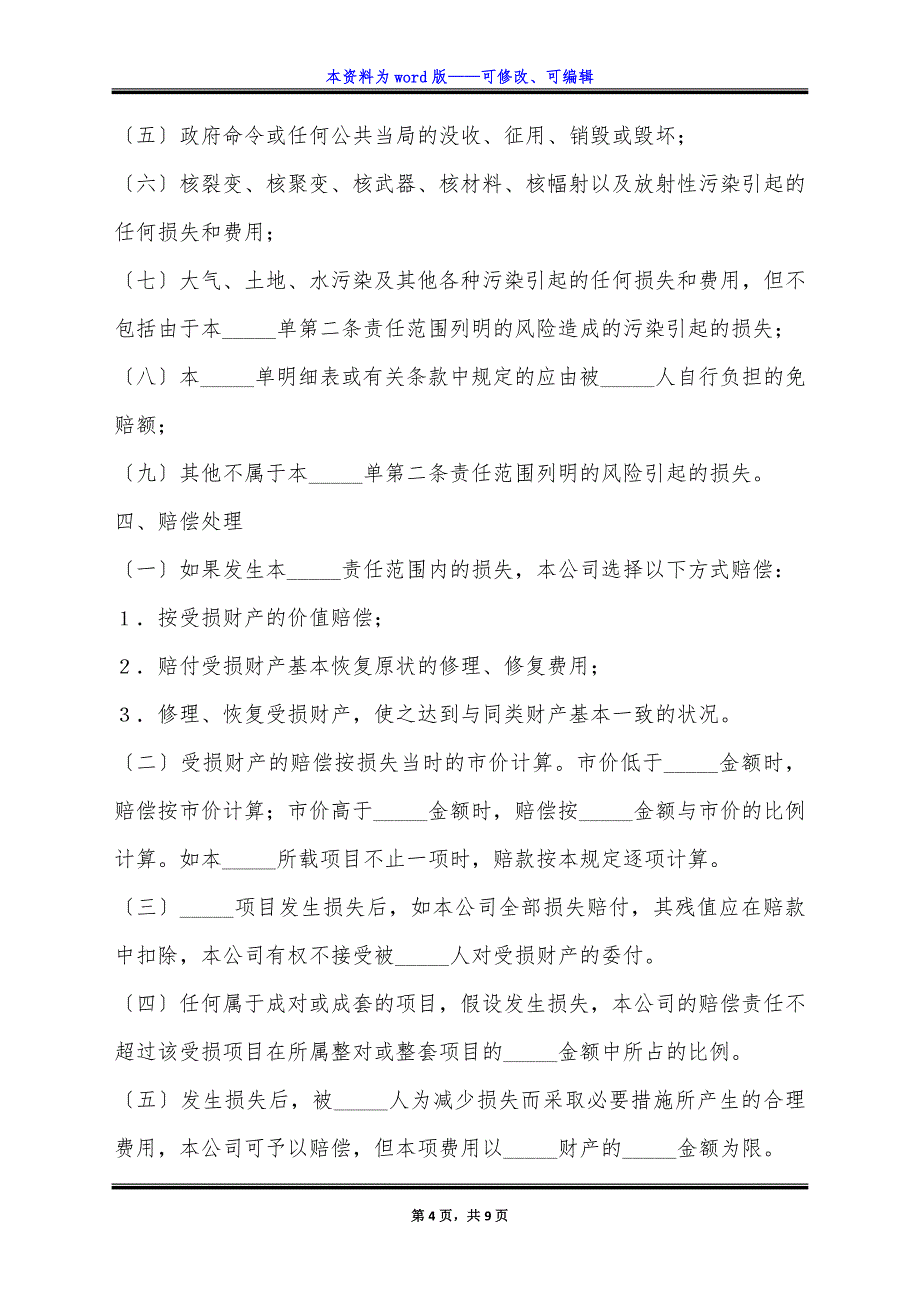 本资料为 word 版——可修改、可编辑
〔五〕政府命令或任何公共当局的没收、征用、销毁或毁坏；
〔六〕核裂变、核聚变、核武器、核材料、核幅射以及放射性污染引起的
任何损失和费用；
〔七〕大气、土地、水污染及其他各种污染引起的任何损失和费用，但不
包括由于本_____单第二条责任范围列明的风险造成的污染引起的损失；
〔八〕本_____单明细表或有关条款中规定的应由被_____人自行负担的免
赔额；
〔九〕其他不属于本_____单第二条责任范围列明的风险引起的损失。
四、赔偿处理
〔一〕如果发生本_____责任范围内的损失，本公司选择以下方式赔偿：
１．按受损财产的价值赔偿；
２．赔付受损财产基本恢复原状的修理、修复费用；
３．修理、恢复受损财产，使之达到与同类财产基本一致的状况。
〔二〕受损财产的赔偿按损失当时的市价计算。市价低于_____金额时，
赔偿按市价计算；市价高于_____金额时，赔偿按_____金额与市价的比例
计算。如本_____所载项目不止一项时，赔款按本规定逐项计算。
〔三〕_____项目发生损失后，如本公司全部损失赔付，其残值应在赔款
中扣除，本公司有权不接受被_____人对受损财产的委付。
〔四〕任何属于成对或成套的项目，假设发生损失，本公司的赔偿责任不
超过该受损项目在所属整对或整套项目的_____金额中所占的比例。
〔五〕发生损失后，被_____人为减少损失而采取必要措施所产生的合理
费用，本公司可予以赔偿，但本项费用以_____财产的_____金额为限。
第 4 页，共 9 页